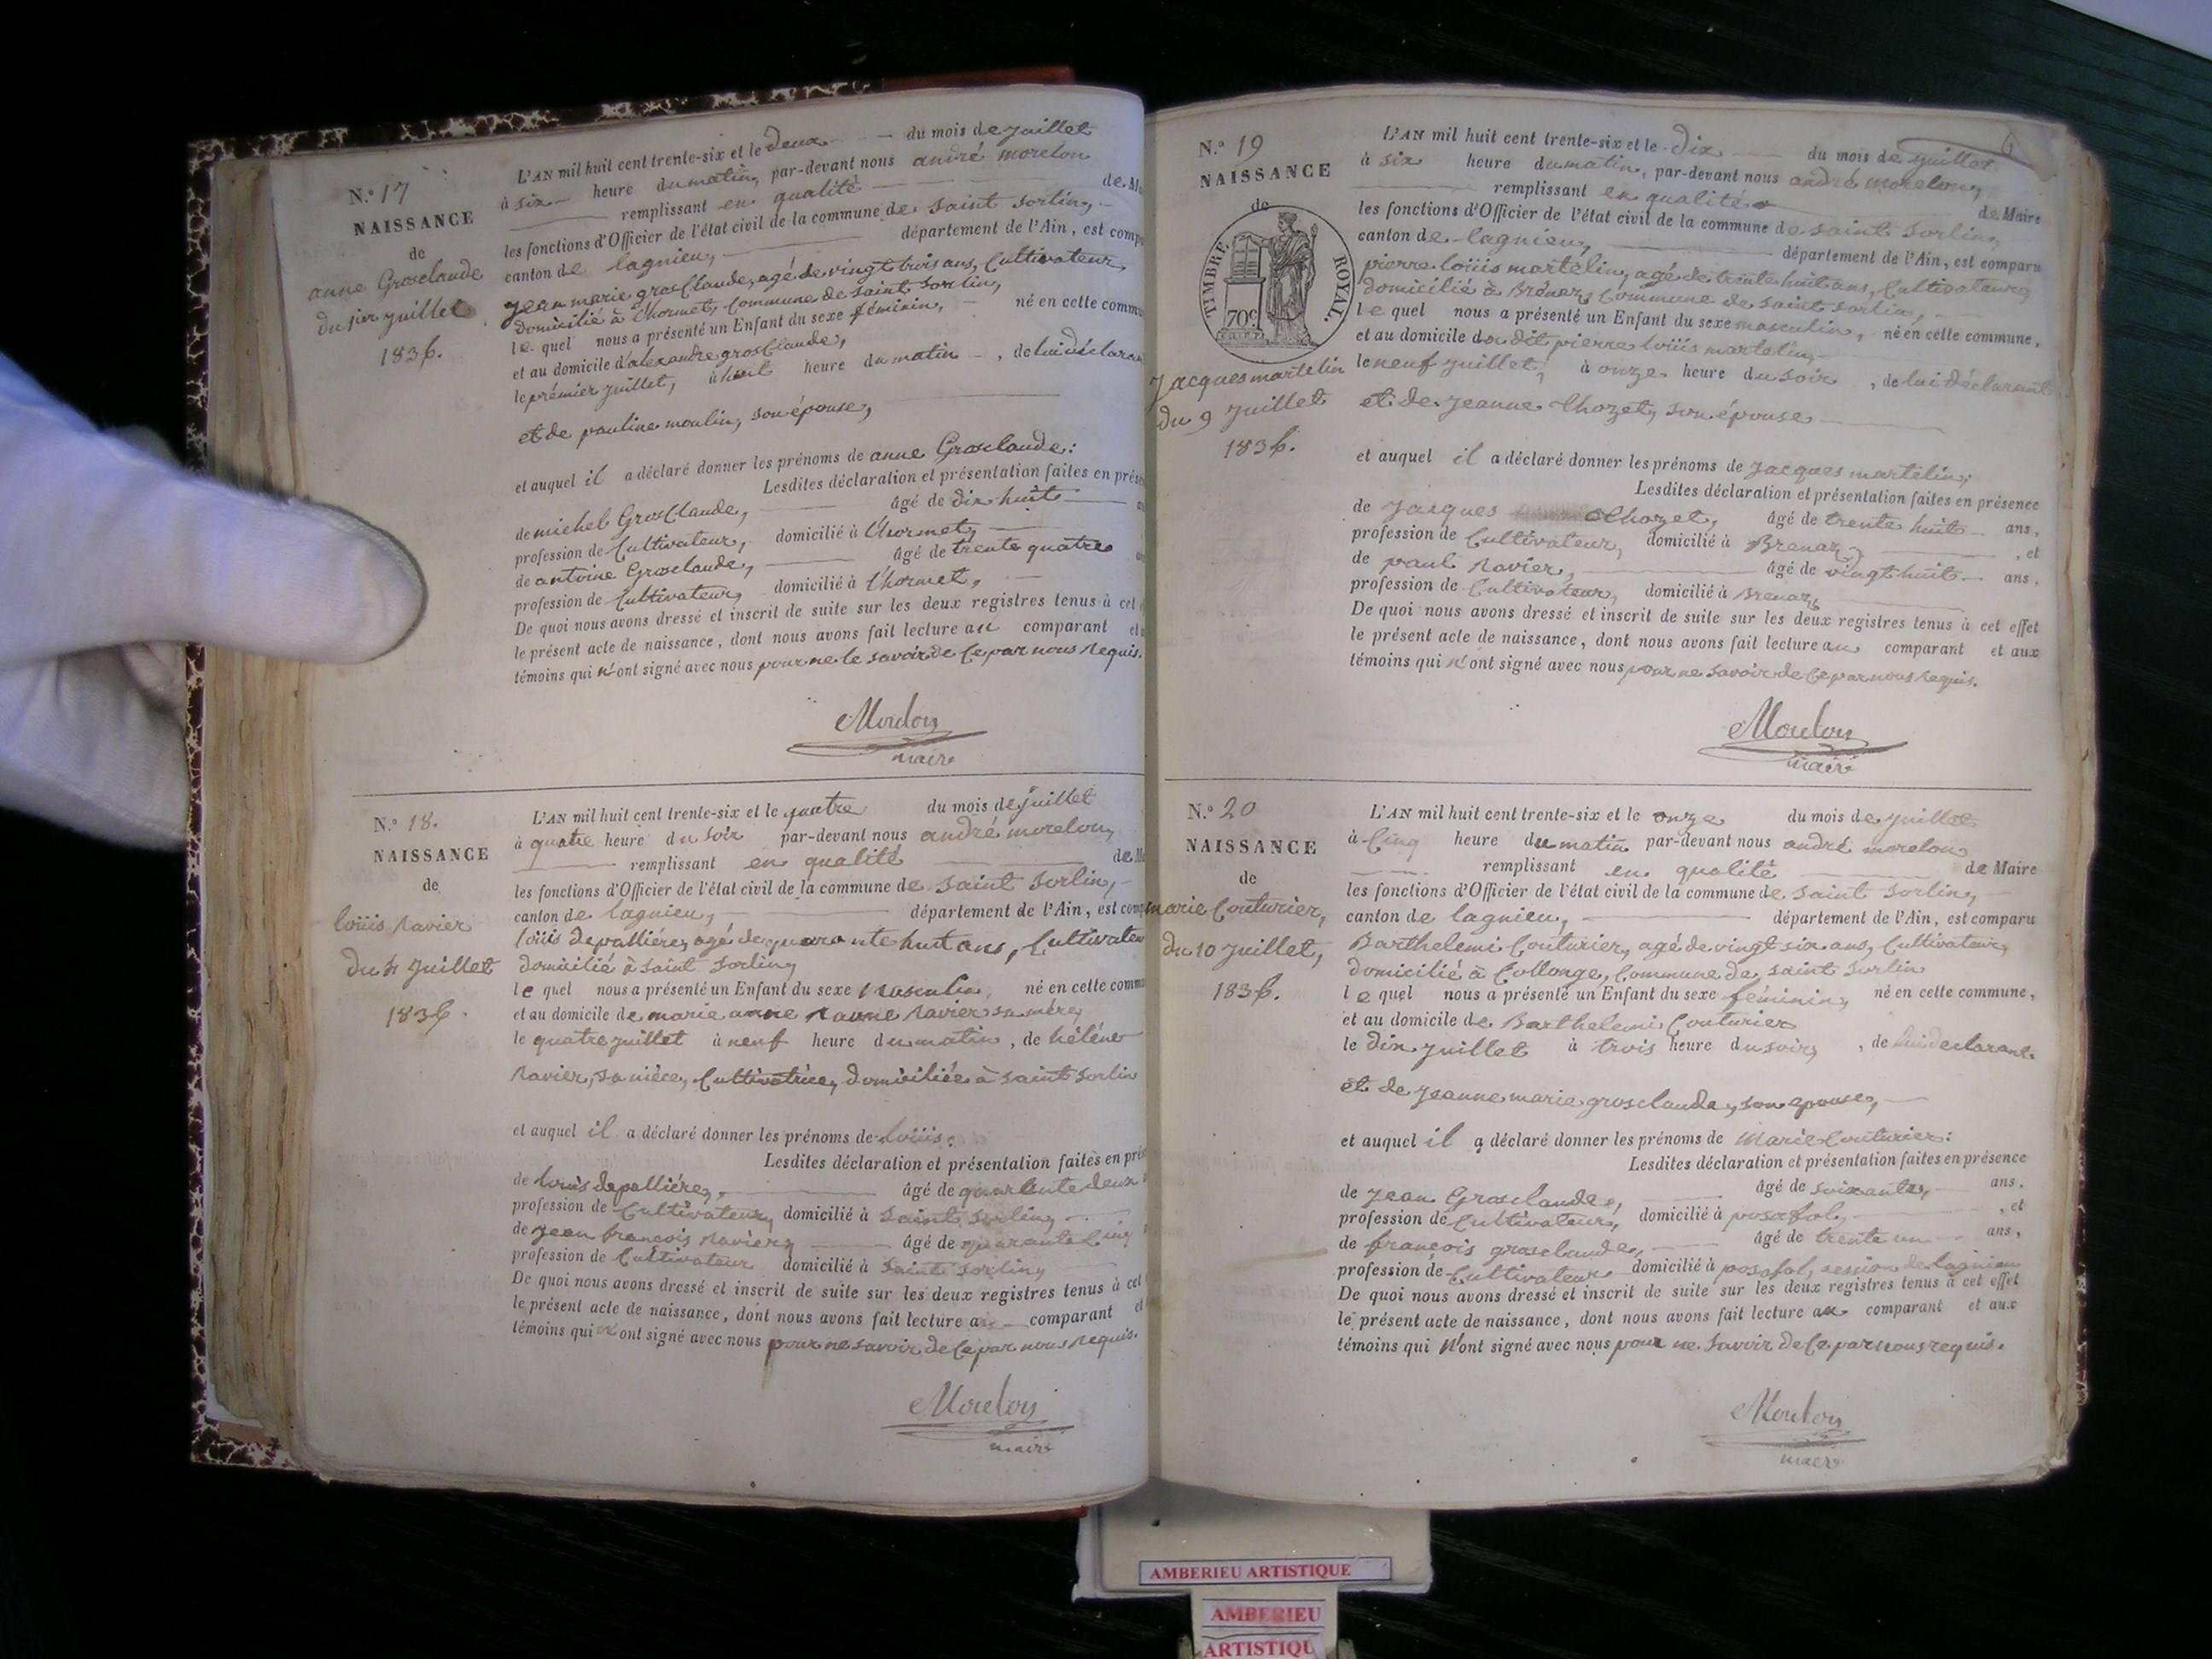 N.º 17
NAISSANCE
de
anne Grosclaude
du 1er juillet
1836.
L'AN mil huit cent trente-six et le deux du mois de juillet
à six heure du matin, par-devant nous andré morelon
remplissant en qualité de
les fonctions d'Officier de l'état civil de la commune de saint sorlin,
canton de lagnieu, département de l'Ain, est
jean marie grosclaude, agé de vingt trois ans, Cultivateur
domicilié à Chormet, commune de saint sorlin,
le quel nous a présenté un Enfant du sexe féminin, né en cette
et au domicile d'alexandre grosclaude,
le prémier juillet, à huit heure du matin, de lui
et de pauline moulin, son épouse,
et auquel il a déclaré donner les prénoms de anne Grosclaude:
Lesdites déclaration et présentation faites en
de michel Grosclaude, âgé de dix huit
profession de Cultivateur, domicilié à Chormet,
de antoine Grosclaude, âgé de trente quatre
profession de Cultivateur, domicilié à Chormet,
De quoi nous avons dressé et inscrit de suite sur les deux registres tenus à cet
le présent acte de naissance, dont nous avons fait lecture au comparant
témoins qui n'ont signé avec nous pour ne le savoir de ce par nous requis.
Morelon
maire
N.º 18.
NAISSANCE
de
loüis Ravier
du 4 juillet
1836.
L'AN mil huit cent trente-six et le quatre du mois de juillet
à quatre heure du soir par-devant nous andré morelon,
remplissant en qualité
les fonctions d'Officier de l'état civil de la commune de saint sorlin,
canton de lagnieu, département de l'Ain, est
loüis depalliére, agé de quarante huit ans,
domicilié à saint sorlin,
le quel nous a présenté un Enfant du sexe Masculin, né en cette
et au domicile de marie anne Ravier sa mére,
le quatre juillet à neuf heure du matin, de héléne
Ravier, sa niéce, Cultivatrice, domiciliée à saint sorlin
et auquel il a déclaré donner les prénoms de loüis:
Lesdites déclaration et présentation faites en
de louis depalliére, âgé de quarante deux
profession de Cultivateur, domicilié à saint sorlin,
de jean françois Ravier, âgé de quarante cinq
profession de Cultivateur domicilié à saint sorlin,
De quoi nous avons dressé et inscrit de suite sur les deux registres tenus à cet
le présent acte de naissance, dont nous avons fait lecture au comparant et
témoins qui n'ont signé avec nous pour ne savoir de ce par nous requis.
Morelon
maire
6
N.º 19
NAISSANCE
de
TIMBRE ROYAL.
70c
Jacques martelin
du 9 juillet
1836.
L'AN mil huit cent trente-six et le dix du mois de juillet
à six heure du matin, par-devant nous andré morelon,
remplissant en qualité de Maire
les fonctions d'Officier de l'état civil de la commune de saint sorlin,
canton de lagnieu, département de l'Ain, est comparu
pierre loüis martelin, agé de trente huit ans, Cultivateur,
domicilié à Brénaz, commune de saint sorlin,
le quel nous a présenté un Enfant du sexe masculin, né en cette commune,
et au domicile du dit pierre loüis martelin,
le neuf juillet, à onze heure du soir, de lui déclarant
et de jeanne Chozet, son épouse
et auquel il a déclaré donner les prénoms de Jacques martelin;
Lesdites déclaration et présentation faites en présence
de Jacques Chozet, âgé de trente huit ans,
profession de Cultivateur, domicilié à Brenaz, et
de paul Ravier, âgé de vingt huit ans,
profession de Cultivateur, domicilié à Brenaz,
De quoi nous avons dressé et inscrit de suite sur les deux registres tenus à cet effet
le présent acte de naissance, dont nous avons fait lecture au comparant et aux
témoins qui n'ont signé avec nous pour ne savoir de ce par nous requis.
Morelon
maire
N.º 20
NAISSANCE
de
marie Couturier,
du 10 juillet,
1836.
L'AN mil huit cent trente-six et le onze du mois de juillet
à cinq heure du matin par-devant nous andré morelon
remplissant en qualité de Maire
les fonctions d'Officier de l'état civil de la commune de saint sorlin,
canton de lagnieu, département de l'Ain, est comparu
Barthelemi Couturier, agé de vingt six ans, Cultivateur,
domicilié à Collonge, commune de saint sorlin
le quel nous a présenté un Enfant du sexe féminin, né en cette commune,
et au domicile de Barthelemi Couturier
le dix juillet à trois heure du soir, de lui declarant
et de jeanne marie grosclaude, son epouse,
et auquel il a déclaré donner les prénoms de Marie Couturier:
Lesdites déclaration et présentation faites en présence
de jean Grosclaude, âgé de soixante, ans,
profession de Cultivateur, domicilié à posafol, et
de françois grosclaude, âgé de trente un ans,
profession de Cultivateur domicilié à posafol, de lagnieu
De quoi nous avons dressé et inscrit de suite sur les deux registres tenus à cet effet
le présent acte de naissance, dont nous avons fait lecture au comparant et aux
témoins qui n'ont signé avec nous pour ne savoir de ce par nous requis.
Morelon
maire
AMBERIEU ARTISTIQUE
AMBERIEU
ARTISTIQU